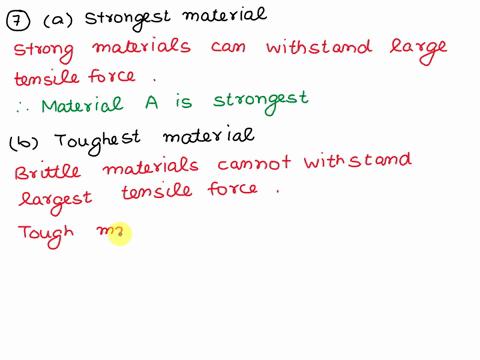 7 (a) Strongest material
Strong materials can withstand large
tensile force .
∴ Material A is strongest
(b) Toughest material
Brittle materials cannot withstand
largest tensile force .
Tough